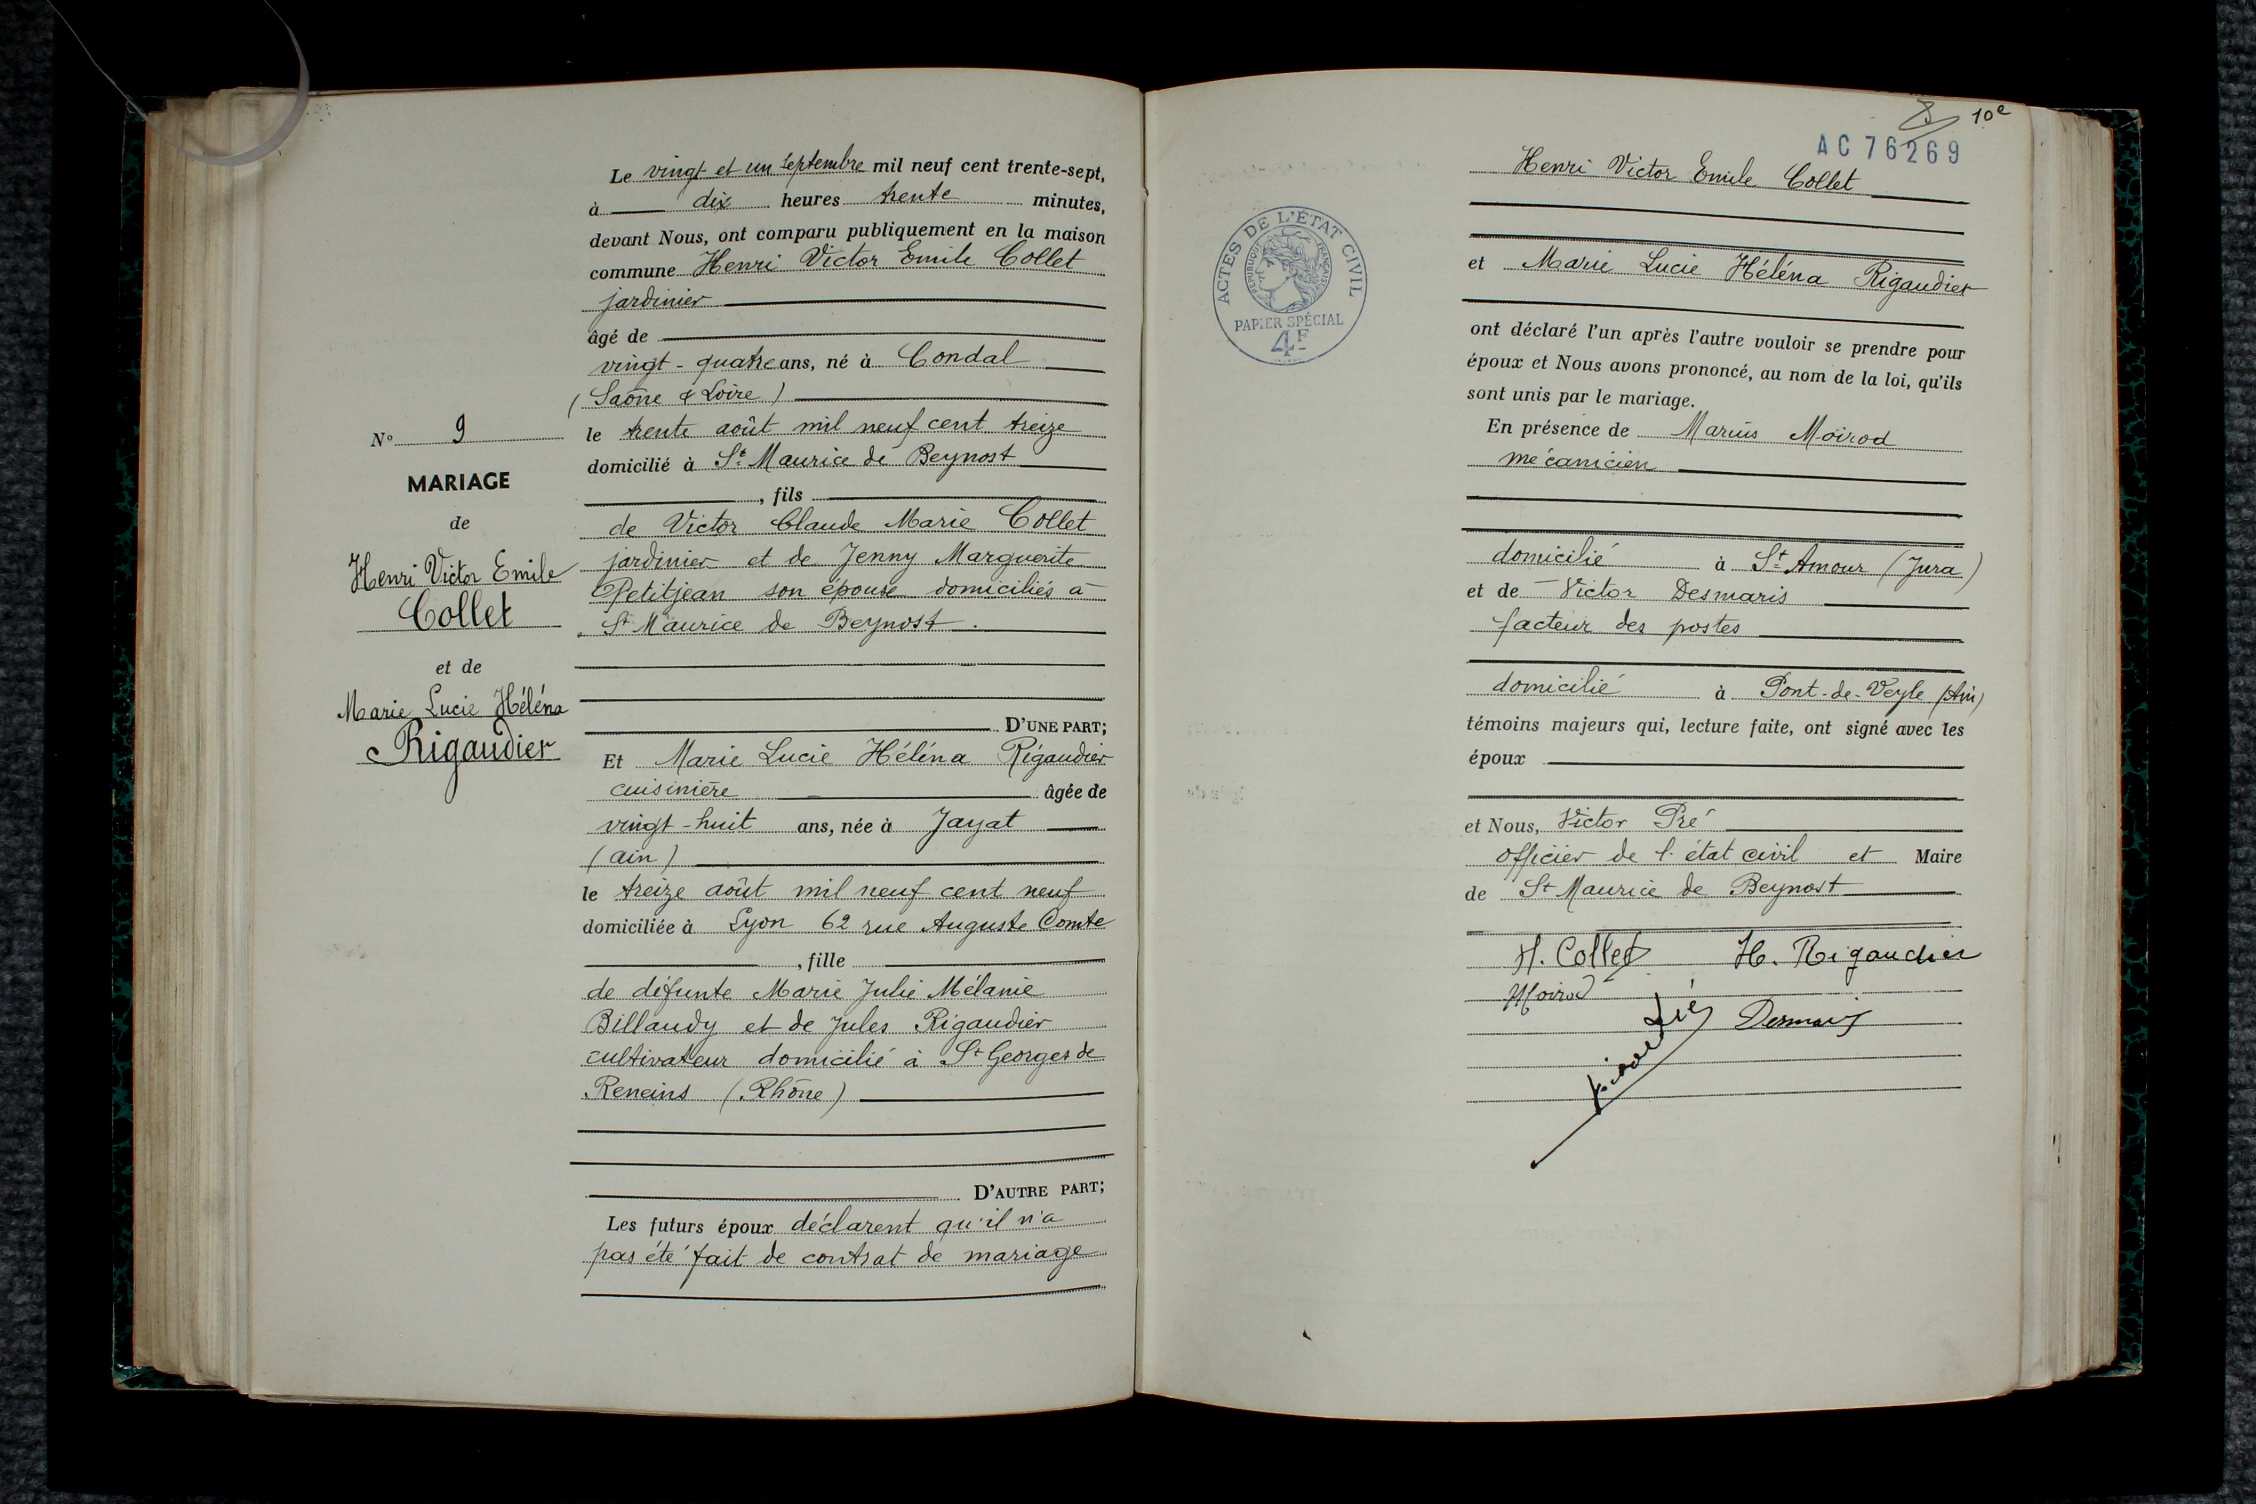 Le vingt et un septembre mil neuf cent trente-sept,
à dix heures trente minutes,
devant Nous, ont comparu publiquement en la maison
commune Henri Victor Emile Collet
jardinier
âgé de
vingt-quatre ans, né à Condal
(Saône & Loire)
le trente août mil neuf cent treize
domicilié à St Maurice de Beynost
, fils
de Victor Claude Marie Collet
jardinier et de Jenny Marguerite
Petitjean son épouse domiciliés à
St Maurice de Beynost.
D'UNE PART;
Et Marie Lucie Héléna Rigaudier
cuisinière âgée de
vingt-huit ans, née à Jayat
(ain)
le treize août mil neuf cent neuf
domiciliée à Lyon 62 rue Auguste Comte
, fille
de défunte Marie Julie Mélanie
Billaudy et de Jules Rigaudier
cultivateur domicilié à St Georges de
Reneins (Rhône)
D'AUTRE PART;
Les futurs époux déclarent qu'il n'a
pas été fait de contrat de mariage
N° 9
MARIAGE
de
Henri Victor Emile
Collet
et de
Marie Lucie Héléna
Rigaudier
10e
AC 76269
ACTES DE L'ÉTAT CIVIL
RÉPUBLIQUE FRANÇAISE
PAPIER SPÉCIAL
4F
Henri Victor Emile Collet
et Marie Lucie Héléna Rigaudier
ont déclaré l'un après l'autre vouloir se prendre pour
époux et Nous avons prononcé, au nom de la loi, qu'ils
sont unis par le mariage.
En présence de Marius Moirod
mécanicien
domicilié à St Amour (Jura)
et de Victor Desmaris
facteur des postes
domicilié à Pont-de-Veyle (Ain)
témoins majeurs qui, lecture faite, ont signé avec les
époux
et Nous, Victor Pré
officier de l'état civil et Maire
de St Maurice de Beynost
H. Collet H. Rigaudier
Moirod
Desmaris